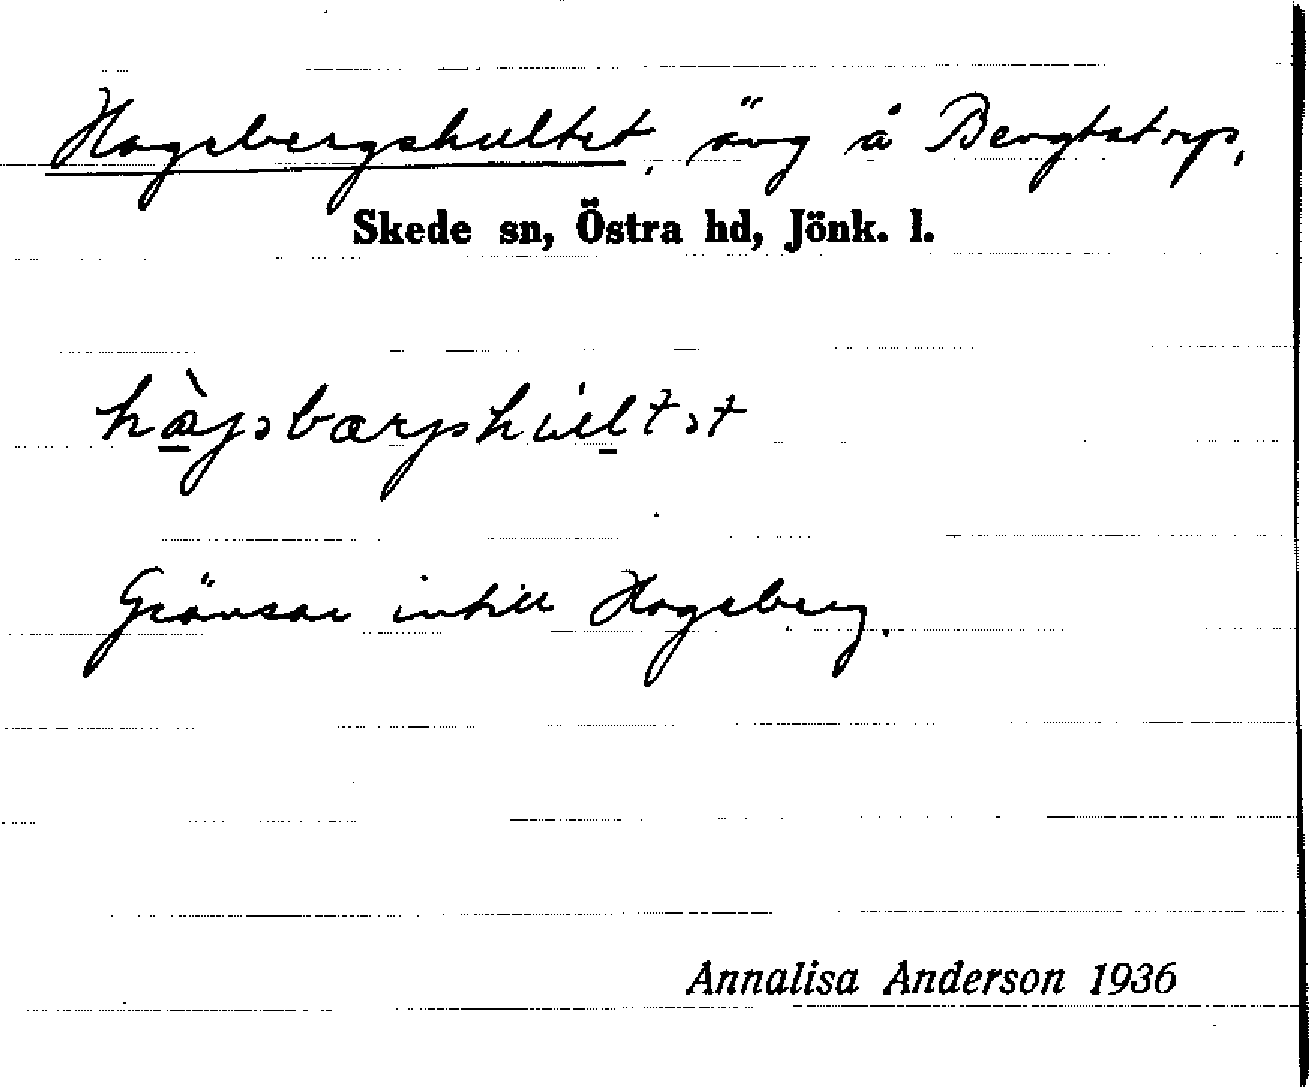 Hagsbergshultet, äng å Bengtstorp,
Skede sn, Östra hd, Jönk. l.
Gränsar intill Hagsberg.
Annalisa Anderson 1936